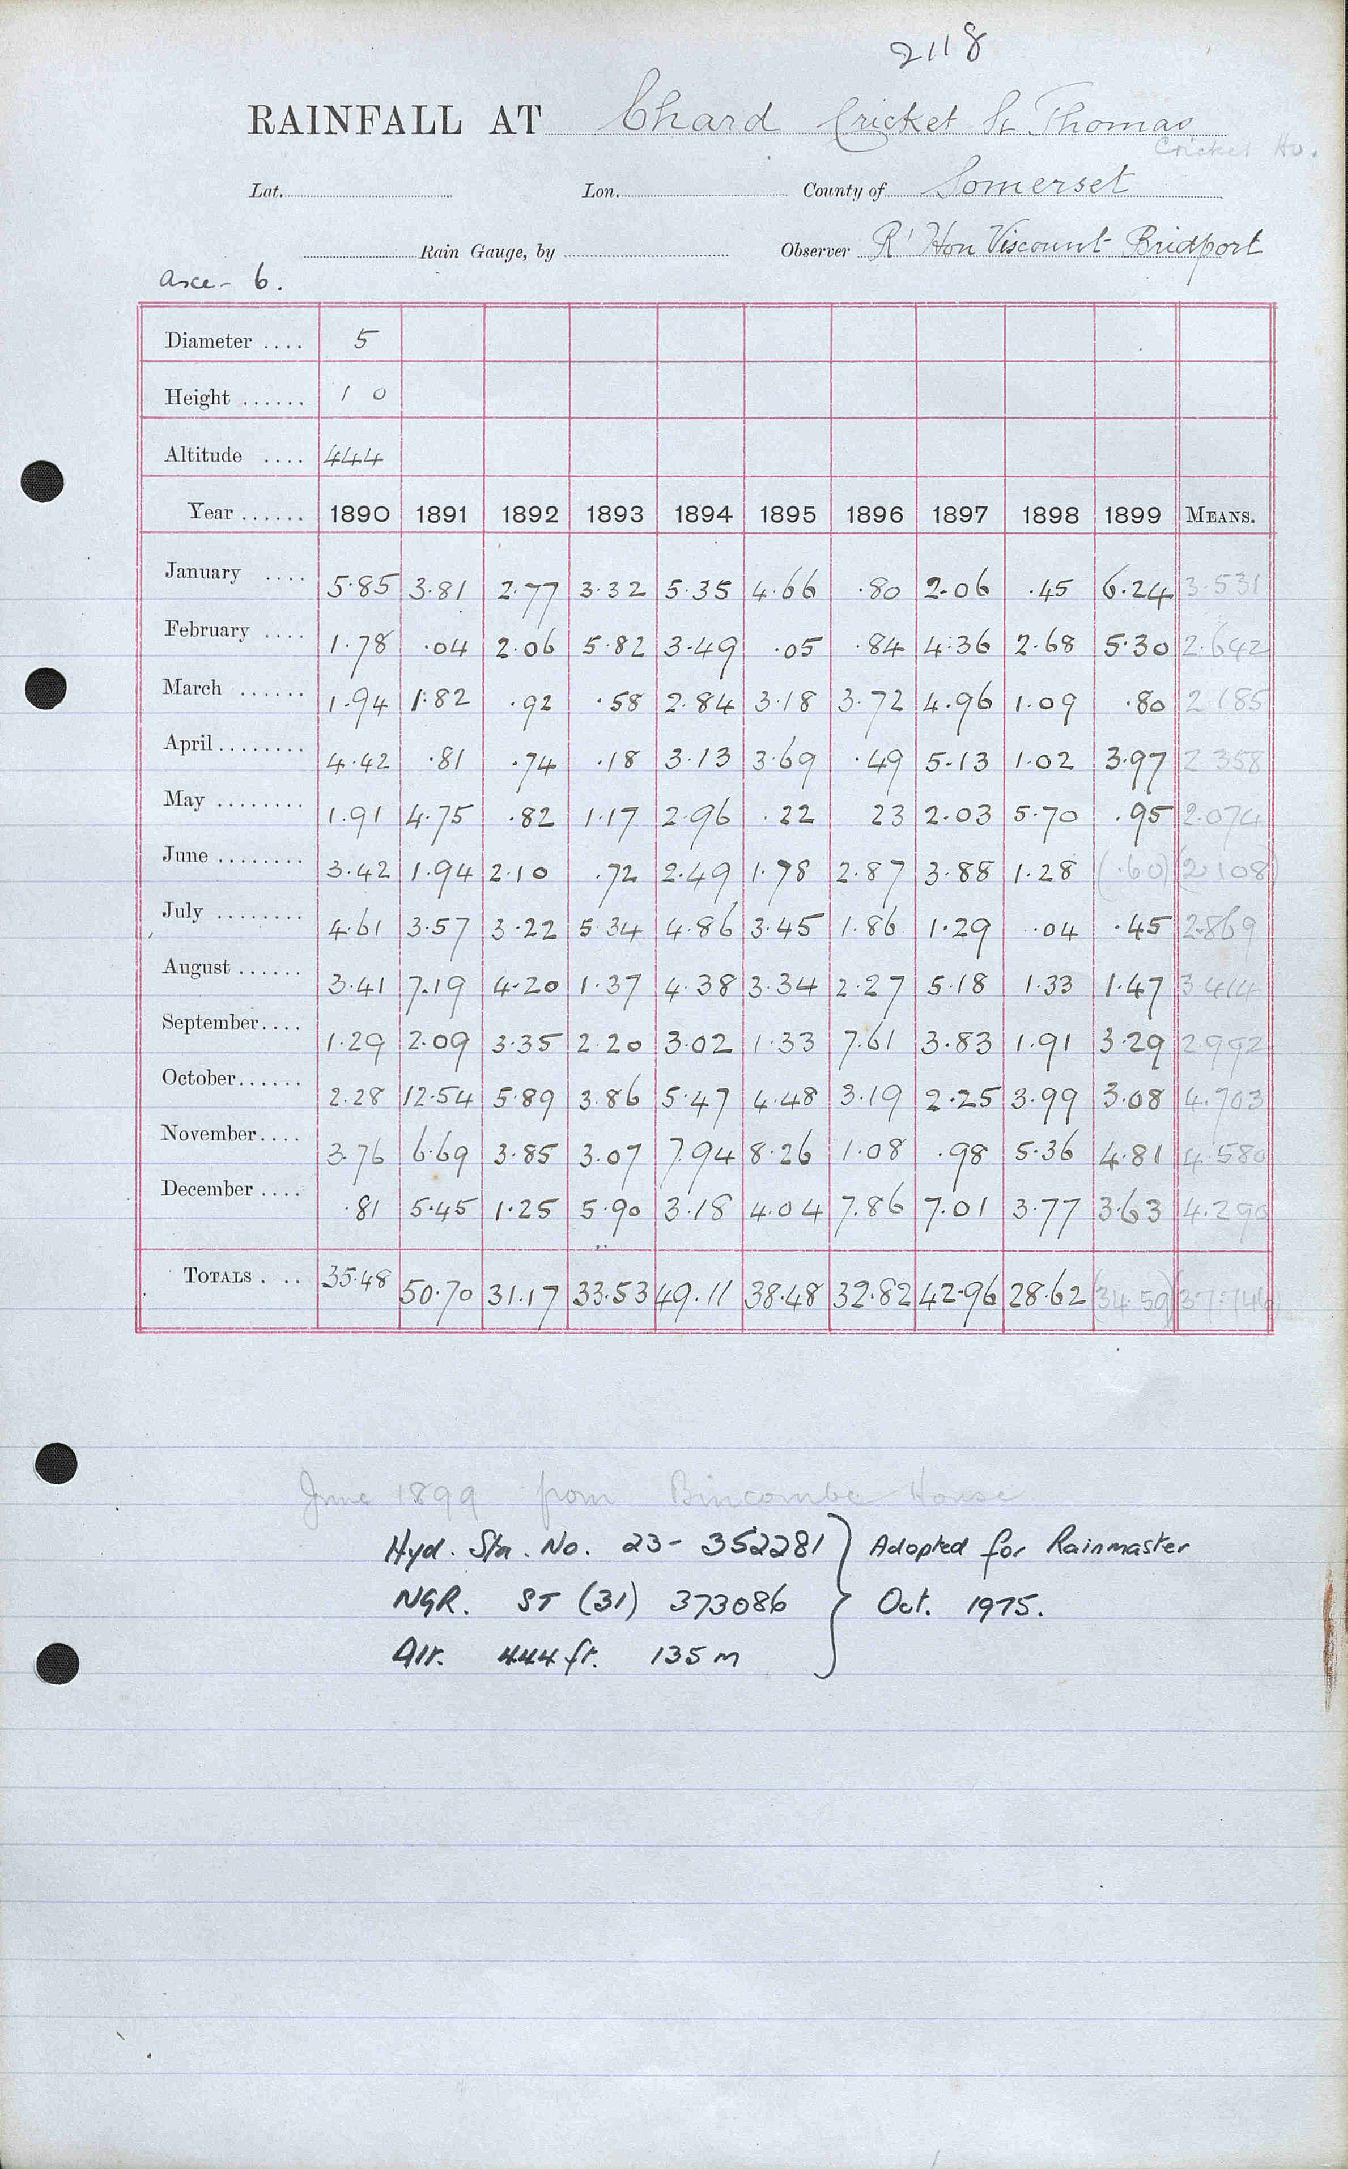 2118
RAINFALL AT Chard Cricket St Thomas
Cricket Ho.
Lat. Lon. County of Somerset
Rain Gauge, by Observer Rt Hon Viscount Bridport
Axe - 6.
Diameter .... 5
Height ...... 1 0
Altitude .... 444
Year ...... 1890 1891 1892 1893 1894 1895 1896 1897 1898 1899 MEANS.
January .... 5.85 3.81 2.77 3.32 5.35 4.66 .80 2.06 .45 6.24 3.531
February .... 1.78 .04 2.06 5.82 3.49 .05 .84 4.36 2.68 5.30 2.642
March ...... 1.94 1.82 .92 .58 2.84 3.18 3.72 4.96 1.09 .80 2.185
April ........ 4.42 .81 .74 .18 3.13 3.69 .49 5.13 1.02 3.97 2.358
May ........ 1.91 4.75 .82 1.17 2.96 .22 23 2.03 5.70 .95 2.074
June ........ 3.42 1.94 2.10 .72 2.49 1.78 2.87 3.88 1.28 (.60) (2.108)
July ........ 4.61 3.57 3.22 5.34 4.86 3.45 1.86 1.29 .04 .45 2.869
August ...... 3.41 7.19 4.20 1.37 4.38 3.34 2.27 5.18 1.33 1.47 3.414
September.... 1.29 2.09 3.35 2.20 3.02 1.33 7.61 3.83 1.91 3.29 2.992
October...... 2.28 12.54 5.89 3.86 5.47 4.48 3.19 2.25 3.99 3.08 4.703
November.... 3.76 6.69 3.85 3.07 7.94 8.26 1.08 .98 5.36 4.81 4.580
December .... .81 5.45 1.25 5.90 3.18 4.04 7.86 7.01 3.77 3.63 4.290
TOTALS . .. 35.48 50.70 31.17 33.53 49.11 38.48 32.82 42.96 28.62 (34.59) (37.746)
June 1899 from Bincombe House
Hyd. Sta. No. 23- 352281 } Adopted for Rainmaster
NGR. ST (31) 373086 Oct. 1975.
Alt. 444 ft. 135 m